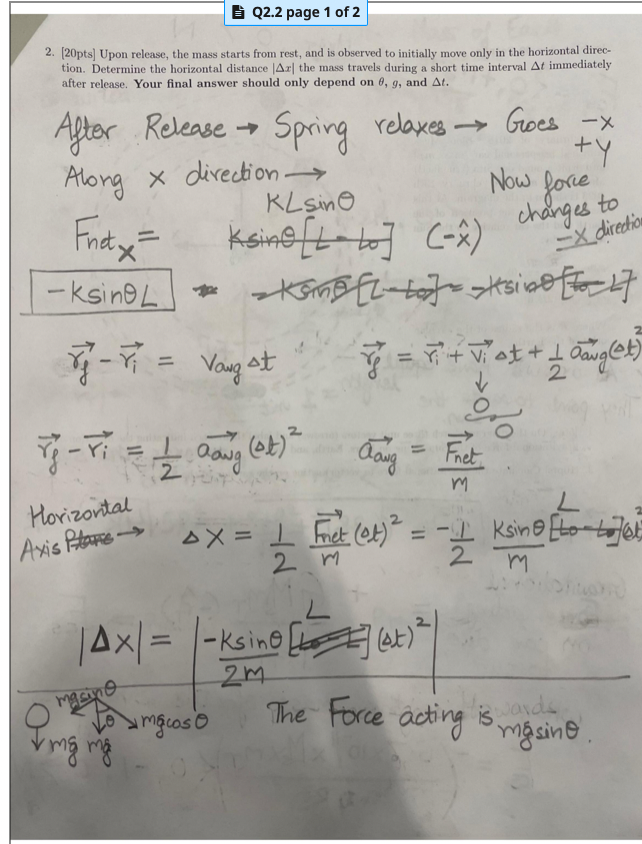 Q2.2 page 1 of 2
2. [20pts] Upon release, the mass starts from rest, and is observed to initially move only in the horizontal direc-
tion. Determine the horizontal distance |Δx| the mass travels during a short time interval Δt immediately
after release. Your final answer should only depend on θ, g, and Δt.
After Release → Spring relaxes → Goes -x
+y
Along x direction →
Now force
changes to
-x direction
KLsinθ
Fnet x = Ksinθ[L-Lo] (-x̂)
-KsinθL = -Ksinθ[L-Lo] = -Ksinθ[Lo-L]
r⃗f - r⃗i = Vavg Δt
r⃗f = r⃗i + V⃗i Δt + 1/2 a⃗avg(Δt)²
↓
0
0
r⃗f - r⃗i = 1/2 a⃗avg (Δt)²
a⃗avg = F⃗net/m
Horizontal
Axis → Δx = 1/2 F⃗net/m (Δt)² = -1/2 Ksinθ/m [Lo-Lo] L (Δt)²
|Δx| = |-Ksinθ/2m L (Δt)²|
mgsinθ
θ
mgcosθ
mg mg
The Force acting is mgsinθ.